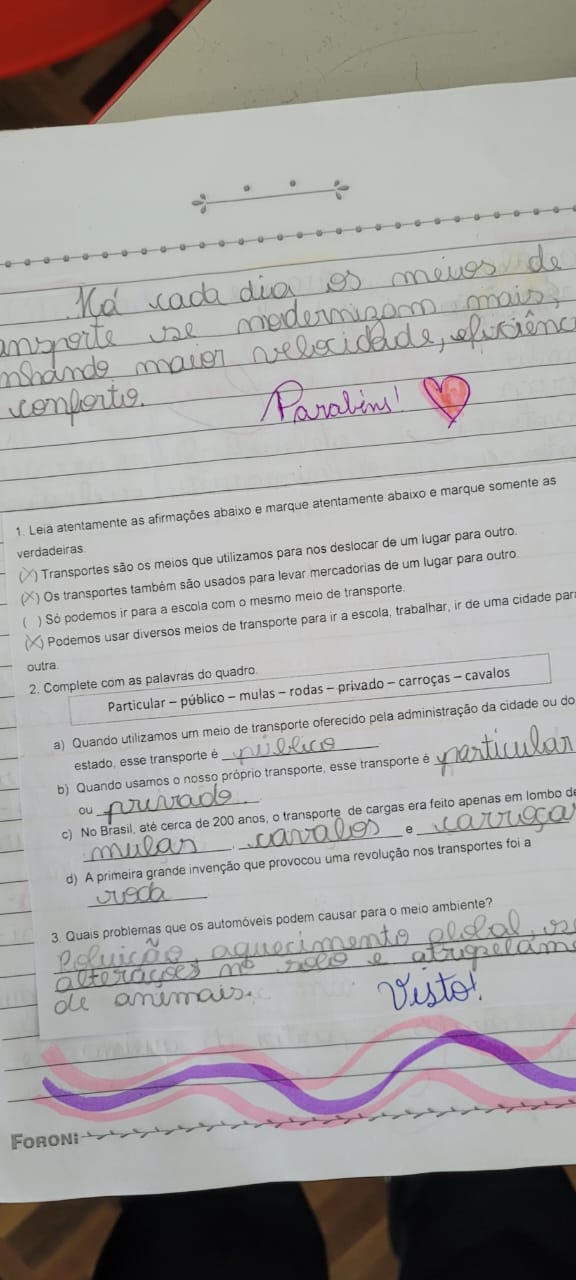 Há cada dia os meios de
ansporte se modernizam mais,
nhando maior velocidade, eficiênc
conforto.
Parabéns!
1. Leia atentamente as afirmações abaixo e marque atentamente abaixo e marque somente as
verdadeiras.
(X) Transportes são os meios que utilizamos para nos deslocar de um lugar para outro.
(X) Os transportes também são usados para levar mercadorias de um lugar para outro.
( ) Só podemos ir para a escola com o mesmo meio de transporte.
(X) Podemos usar diversos meios de transporte para ir a escola, trabalhar, ir de uma cidade para
outra.
2. Complete com as palavras do quadro.
Particular – público – mulas – rodas – privado – carroças – cavalos
a) Quando utilizamos um meio de transporte oferecido pela administração da cidade ou do
estado, esse transporte é público
b) Quando usamos o nosso próprio transporte, esse transporte é particular
ou privado.
c) No Brasil, até cerca de 200 anos, o transporte de cargas era feito apenas em lombo de
mulas, cavalos e carroça
d) A primeira grande invenção que provocou uma revolução nos transportes foi a
roda
3. Quais problemas que os automóveis podem causar para o meio ambiente?
Poluição, aquecimento global,
alterações no solo e atropelam
de animais.
Visto!
FORONI